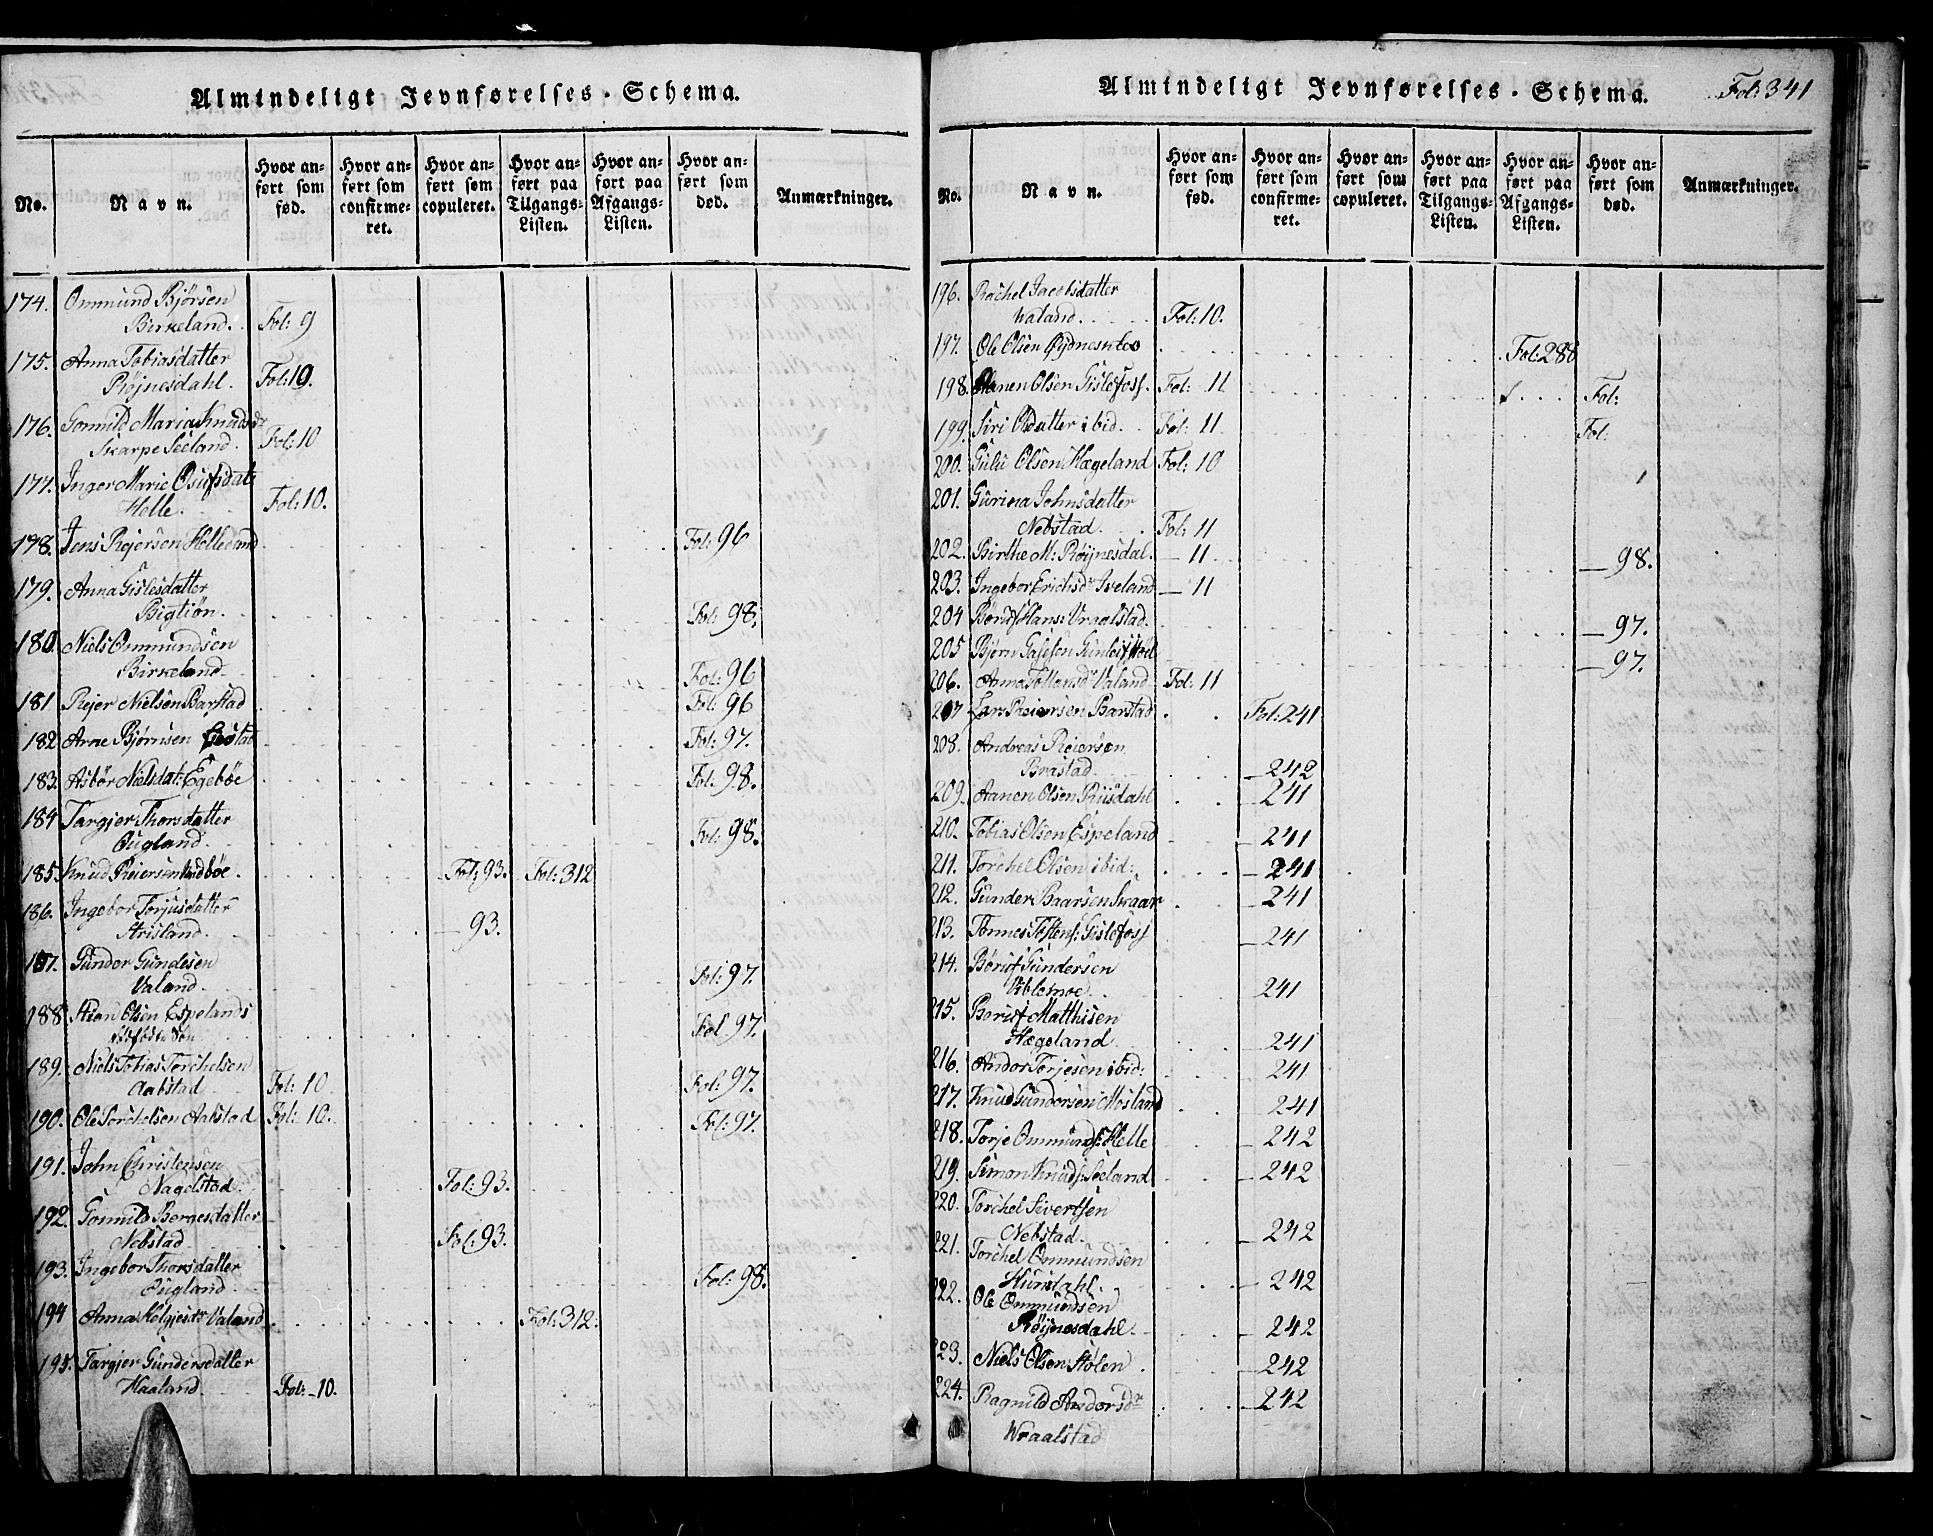 Almindeligt Jevnførelses-Schema.
No. Navn. Hvor anført som fød. Hvor anført som confirmeret. Hvor anført som copuleret. Hvor anført paa Tilgangs-Listen. Hvor anført paa Afgangs-Listen. Hvor anført som død. Anmærkninger.
174. Ommund Bjørsen
Birkeland. Fol: 9
175. Anna Tobiasdatter
Røjnesdahl. Fol: 10.
176. Gonnild Maria Knudsdr
Skarpe Seeland. Fol: 10
177. Inger Marie Osufsdatr
Helle. Fol: 10.
178. Jens Rejersen Helleland Fol: 96
179. Anna Gislesdatter
Bigtiøn. Fol: 98.
180. Niels Ommundsen
Birkeland Fol: 96
181 Rejer Nielsen Barstad Fol: 96
182 Arne Bjørnsen Fol: 97.
183. Asbør Nielsdat: Egebøe Fol: 98.
184 Targjer Thorsdatter
Ougland. Fol: 98.
185. Knud Reiersen Fol: 93. Fol: 312
186. Ingebor Torjusdatter
Strisland. 93.
187. Gunder Gundesen
Valand. Fol: 97.
188 Stian Olsen Espelands
Søn Fol. 97.
189. Niels Tobias Torchelsen
Aabstad Fol: 10 Fol: 97.
190. Ole Torchelsen Aabstad Fol: 10. Fol: 97.
191. John Christensen
Nagelstad. Fol: 93.
192. Gonnild Borgesdatter
Nebstad Fol: 93.
193. Ingebor Thorsdatter
Ougland. Fol: 98.
194 Anna Helgjesdr Valand Fol: 312.
195. Targjer Gundersdatter
Haaland. Fol: 10.
Almindeligt Jevnførelses-Schema. Fol: 341
No. Navn. Hvor anført som fød. Hvor anført som confirmeret. Hvor anført som copuleret. Hvor anført paa Tilgangs-Listen. Hvor anført paa Afgangs-Listen. Hvor anført som død. Anmærkninger.
196. Rachel Jacobsdatter
Valand. Fol: 10.
197. Ole Olsen Øydneskleo Fol: 288
198. Aanen Olsen Gislefoss. Fol: 11 Fol:
199. Siri Olsdatter ibid. Fol: 11 Fol:
200. Gulu Olsen Hægeland Fol: 10
201. Gurina Johnsdatter
Nebstad. Fol: 11
202. Birthe M: Røijnesdal. — 11. — 98.
203. Ingebor Erichsdr Iveland — 11
204 Børuf Hans: Vraalstad. — 97.
205 Bjørn — 97.
206. Anna Tollaksdr Valand Fol: 11
207 Lars Reiersen Barstad Fol: 241
208. Andreas Reiersen
Brastad. — 242
209. Aanen Olsen Riisdahl — 241
210. Tobias Olsen Espeland — 241
211. Torchel Olsen ibid: — 241
212. Gunder Baarsen Skaar — 241
213. Tønnes Tostens: Gislefoss — 241
214. Børuf Gundersen
Viblemoe 241
215. Boruf Matthisen
Hægeland — 241
216. Andor Torjesen ibid: 241
217. Knud Gundersen Mosland 241
218. Torje Ommunds: Helle — 242
219. Simon Knuds: Seeland — 242
220. Torchel Sivertsen
Nebstad. — 242
221. Torchel Ommundsen
Hundahl — 242
222. Ole Ommundsen
Røijnesdahl. — 242
223. Niels Olsen Stølen — 242
224. Ragnild Andorsdr — 242
Wraalstad